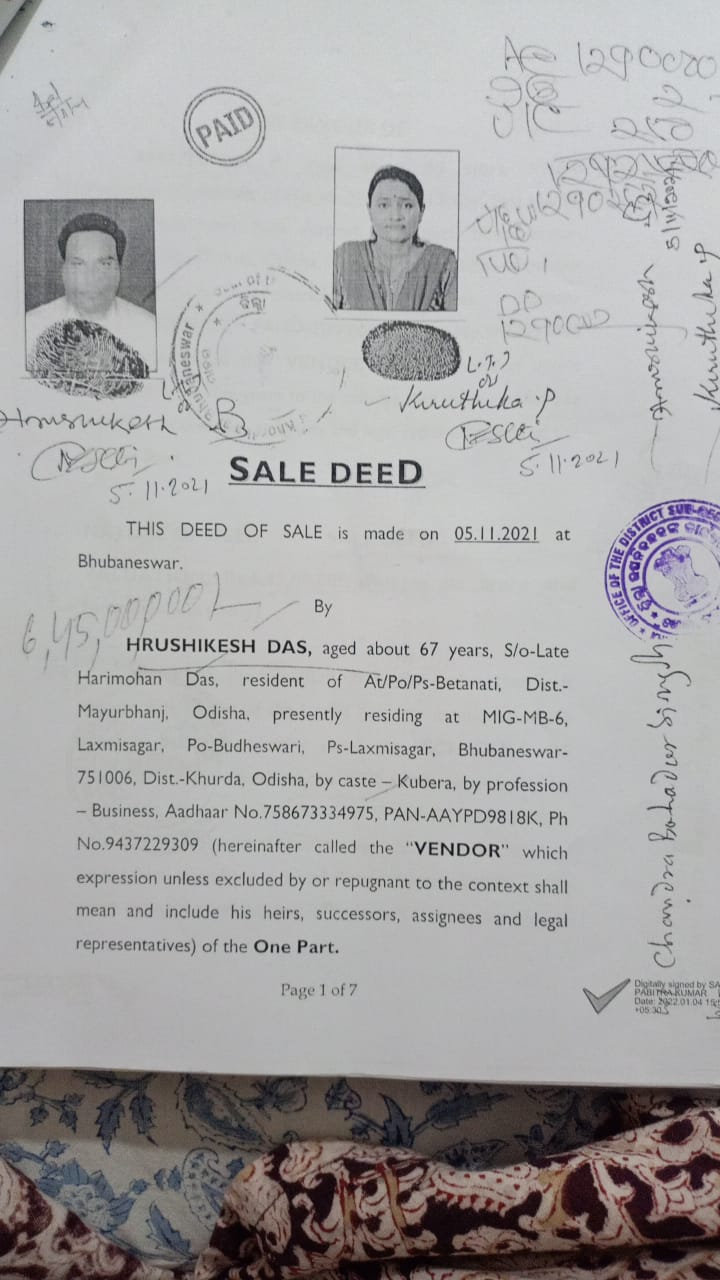 PAID
1290000
129000
L.T.I
of
Kiruthika .P
5.11.2021
5.11.2021
Kiruthika .P
5/11/2021
SALE DEED
THIS DEED OF SALE is made on 05.11.2021 at
Bhubaneswar.
6,45,00,000/-
By
HRUSHIKESH DAS, aged about 67 years, S/o-Late
Harimohan Das, resident of At/Po/Ps-Betanati, Dist.-
Mayurbhanj, Odisha, presently residing at MIG-MB-6,
Laxmisagar, Po-Budheswari, Ps-Laxmisagar, Bhubaneswar-
751006, Dist.-Khurda, Odisha, by caste – Kubera, by profession
– Business, Aadhaar No.758673334975, PAN-AAYPD9818K, Ph
No.9437229309 (hereinafter called the “VENDOR” which
expression unless excluded by or repugnant to the context shall
mean and include his heirs, successors, assignees and legal
representatives) of the One Part.
OFFICE OF THE DISTRICT SUB-REG
Chandra Bahadur Singh
Page 1 of 7
Digitally signed by SA
PABITRA KUMAR
Date: 2022.01.04 15
+05:30